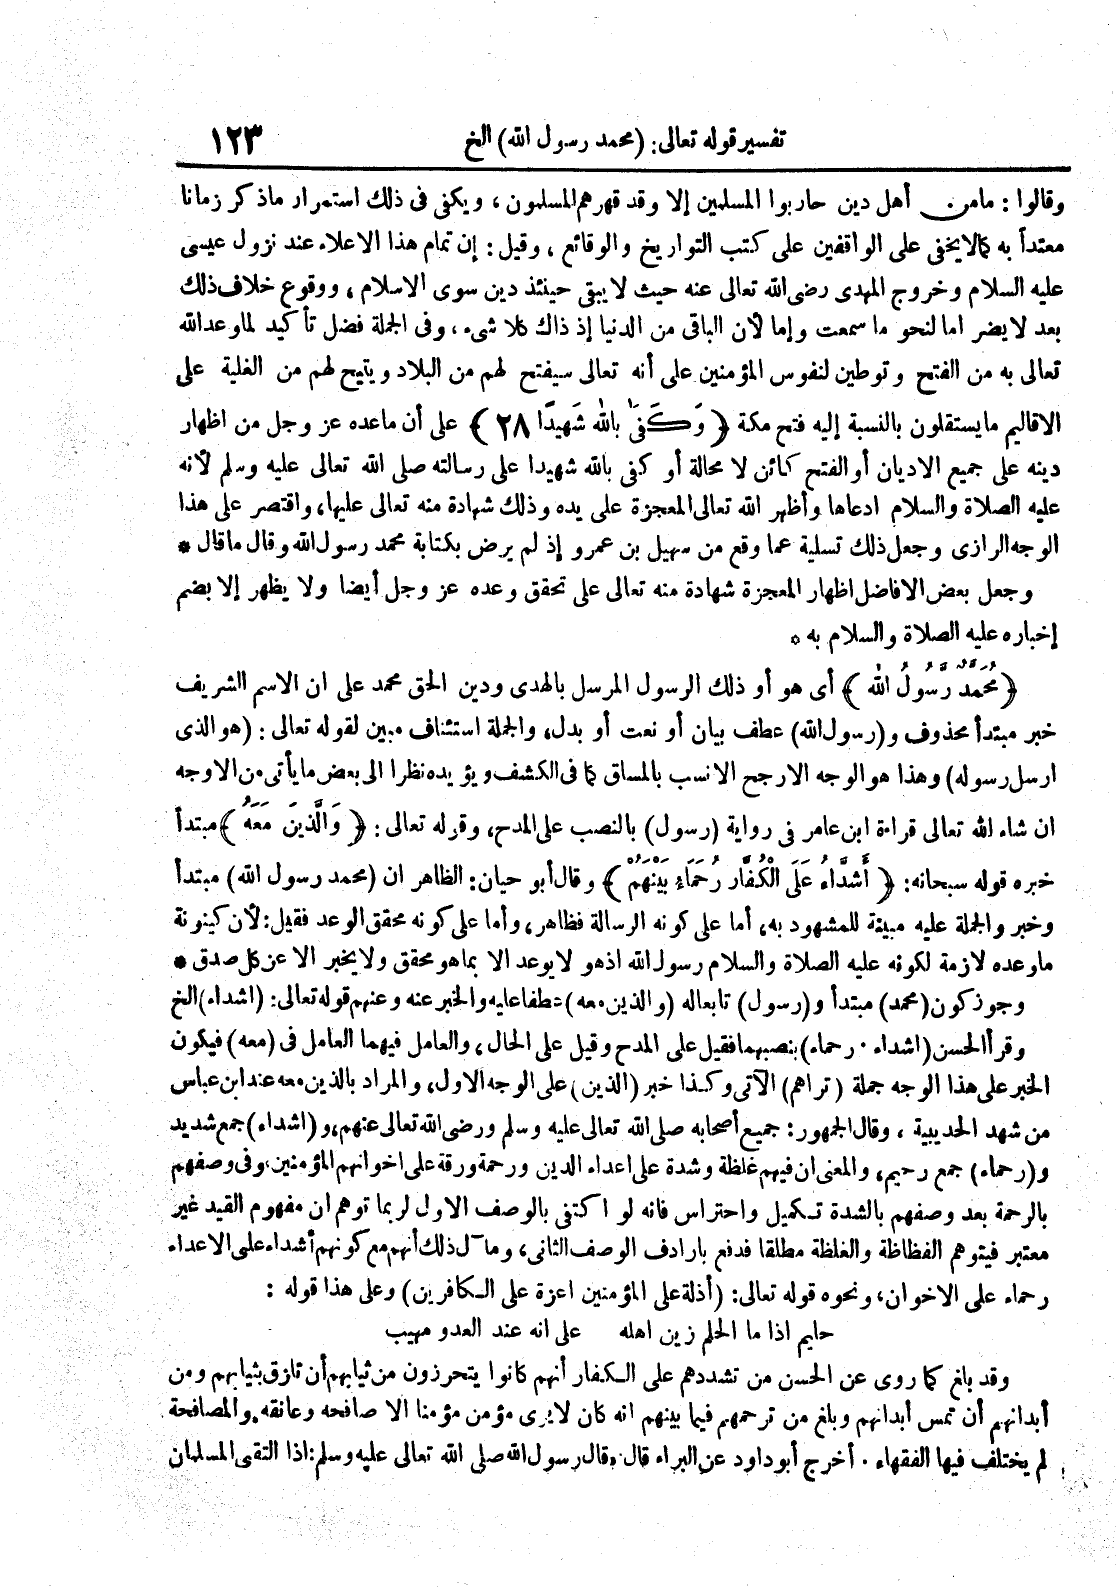 تفسير قوله تعالى: (محمد رسول الله) الخ ١٢٣
وقالوا : مامن أهل دين حاربوا المسلمين إلا وقد قهرهم المسلمون ، ويكفى فى ذلك استمرار ماذكر زمانا
معتداً به كما لايخفى على الواقفين على كتب التواريخ والوقائع ، وقيل : إن تمام هذا الاعلاء عند نزول عيسى
عليه السلام وخروج المهدى رضى الله تعالى عنه حيث لايبقى حينئذ دين سوى الاسلام ، ووقوع خلاف ذلك
بعد لايضر اما لنحو ما سمعت وإما لأن الباقى من الدنيا إذ ذاك كلا شىء ، وفى الجملة فضل تأكيد لما وعد الله
تعالى به من الفتح وتوطين لنفوس المؤمنين على أنه تعالى سيفتح لهم من البلاد ويتيح لهم من الغلبة على
الاقاليم مايستقلون بالنسبة إليه فتح مكة ﴿ وَكَفَىٰ بِاللَّهِ شَهِيدًا ٢٨ ﴾ على أن ماعده عز وجل من اظهار
دينه على جميع الاديان أو الفتح كائن لا محالة أو كفى بالله شهيدا على رسالته صلى الله تعالى عليه وسلم لأنه
عليه الصلاة والسلام ادعاها وأظهر الله تعالى المعجزة على يده وذلك شهادة منه تعالى عليها، واقتصر على هذا
الوجه الرازى وجعل ذلك تسلية عما وقع من سهيل بن عمرو إذ لم يرض بكتابة محمد رسول الله وقال ماقال *
وجعل بعض الافاضل اظهار المعجزة شهادة منه تعالى على تحقق وعده عز وجل أيضا ولا يظهر إلا بضم
إخباره عليه الصلاة والسلام به *
﴿ مُحَمَّدٌ رَّسُولُ اللَّهِ ﴾ أى هو أو ذلك الرسول المرسل بالهدى ودين الحق محمد على ان الاسم الشريف
خبر مبتدأ محذوف و(رسول الله) عطف بيان أو نعت أو بدل، والجملة استئناف مبين لقوله تعالى : (هو الذى
ارسل رسوله) وهذا هو الوجه الارجح الانسب بالمساق كما فى الكشف ويؤيده نظرا الى بعض مايأتى من الاوجه
ان شاء الله تعالى قراءة ابن عامر فى رواية (رسول) بالنصب على المدح، وقوله تعالى : ﴿ وَالَّذِينَ مَعَهُ ﴾ مبتدأ
خبره قوله سبحانه: ﴿ أَشِدَّاءُ عَلَى الْكُفَّارِ رُحَمَاءُ بَيْنَهُمْ ﴾ وقال أبو حيان: الظاهر ان (محمد رسول الله) مبتدأ
وخبر والجملة عليه مبينة للمشهود به، أما على كونه الرسالة فظاهر، وأما على كونه محقق الوعد فقيل: لأن كينونة
ماوعده لازمة لكونه عليه الصلاة والسلام رسول الله اذهو لايوعد الا بماهو محقق ولايخبر الا عن كل صدق *
وجوز كون (محمد) مبتدأ و(رسول) تابعاله (والذين معه) عطفا عليه والخبر عنه وعنهم قوله تعالى: (اشداء) الخ
وقرأ الحسن (اشداء . رحماء) بنصبهما فقيل على المدح وقيل على الحال، والعامل فيهما العامل فى (معه) فيكون
الخبر على هذا الوجه جملة (تراهم) الآتى وكذا خبر (الذين) على الوجه الاول، والمراد بالذين معه عند ابن عباس
من شهد الحديبية ، وقال الجمهور : جميع أصحابه صلى الله تعالى عليه وسلم ورضى الله تعالى عنهم، و(اشداء) جمع شديد
و(رحماء) جمع رحيم، والمعنى ان فيهم غلظة وشدة على اعداء الدين ورحمة ورقة على اخوانهم المؤمنين، وفى وصفهم
بالرحمة بعد وصفهم بالشدة تكميل واحتراس فانه لو اكتفى بالوصف الاول لربما توهم ان مفهوم القيد غير
معتبر فيتوهم الفظاظة والغلظة مطلقا فدفع بارادف الوصف الثانى، ومآل ذلك أنهم مع كونهم أشداء على الاعداء
رحماء على الاخوان، ونحوه قوله تعالى: (أذلة على المؤمنين اعزة على الكافرين) وعلى هذا قوله :
حليم اذا ما الحلم زين اهله على انه عند العدو مهيب
وقد بلغ كما روى عن الحسن من تشددهم على الكفار أنهم كانوا يتحرزون من ثيابهم أن تلزق بثيابهم ومن
أبدانهم أن تمس أبدانهم وبلغ من ترحمهم فيما بينهم انه كان لايرى مؤمن مؤمنا الا صافحه وعانقه، والمصافحة
لم يختلف فيها الفقهاء . أخرج أبو داود عن البراء قال: قال رسول الله صلى الله تعالى عليه وسلم: اذا التقى المسلمان